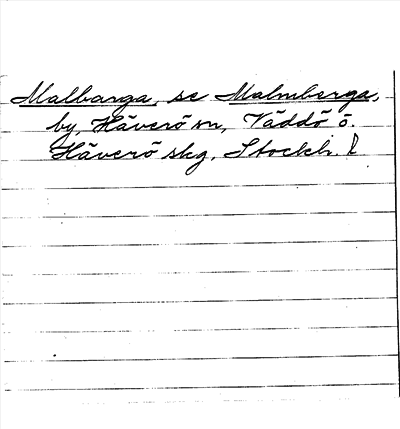 Malbarga, se Malmberga,
by, Häverö sn, Väddö o.
Häverö skg, Stockh. l